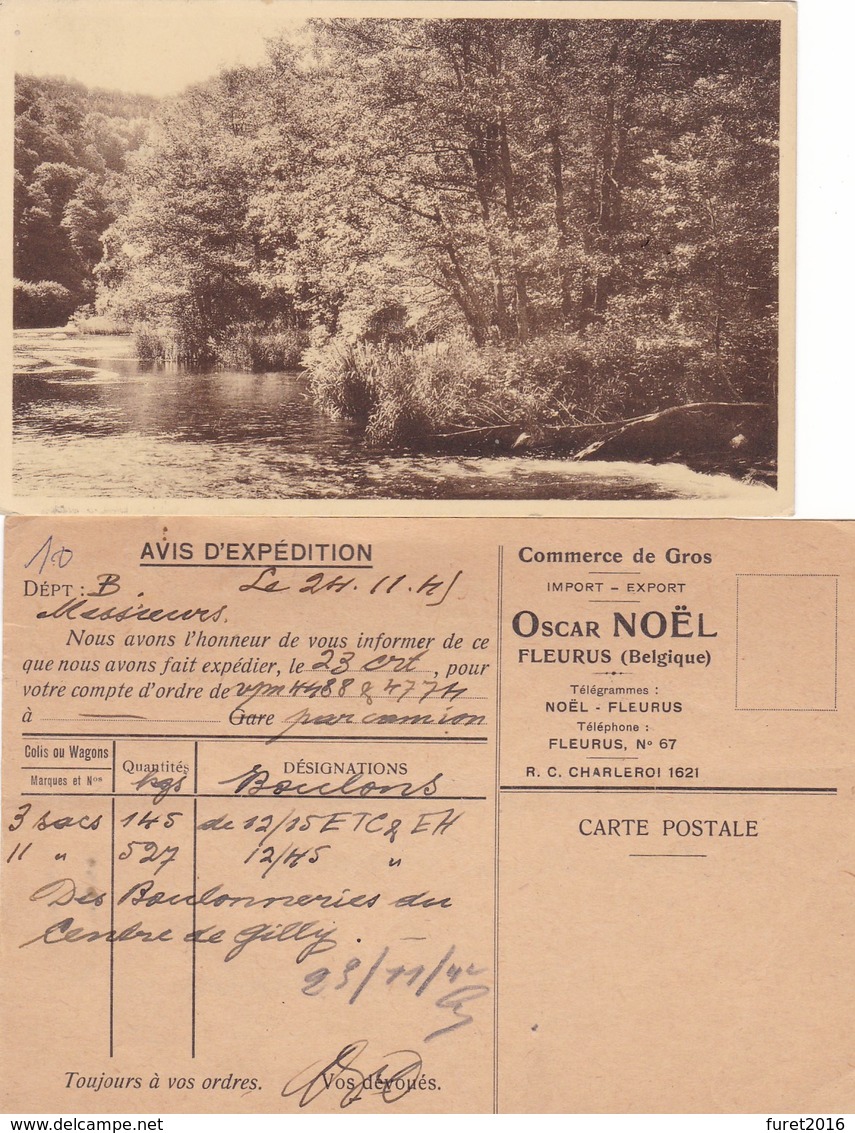 10
AVIS D'EXPÉDITION
DÉPT : B. Le 24.11.45
Messieurs.
Nous avons l'honneur de vous informer de ce
que nous avons fait expédier, le 23 crt, pour
votre compte d'ordre de vpm 4488 & 4774
à — Gare par camion
Colis ou Wagons
Marques et Nos
Quantités
kgs
DÉSIGNATIONS
Boulons
3 sacs 145 de 12/15 ETC & EH
11 " 527 12/45 "
Des Boulonneries du
Centre de Gilly.
Toujours à vos ordres. Vos dévoués.
Commerce de Gros
IMPORT – EXPORT
OSCAR NOËL
FLEURUS (Belgique)
Télégrammes :
NOËL - FLEURUS
Téléphone :
FLEURUS, No 67
R. C. CHARLEROI 1621
CARTE POSTALE
www.delcampe.net
furet2016